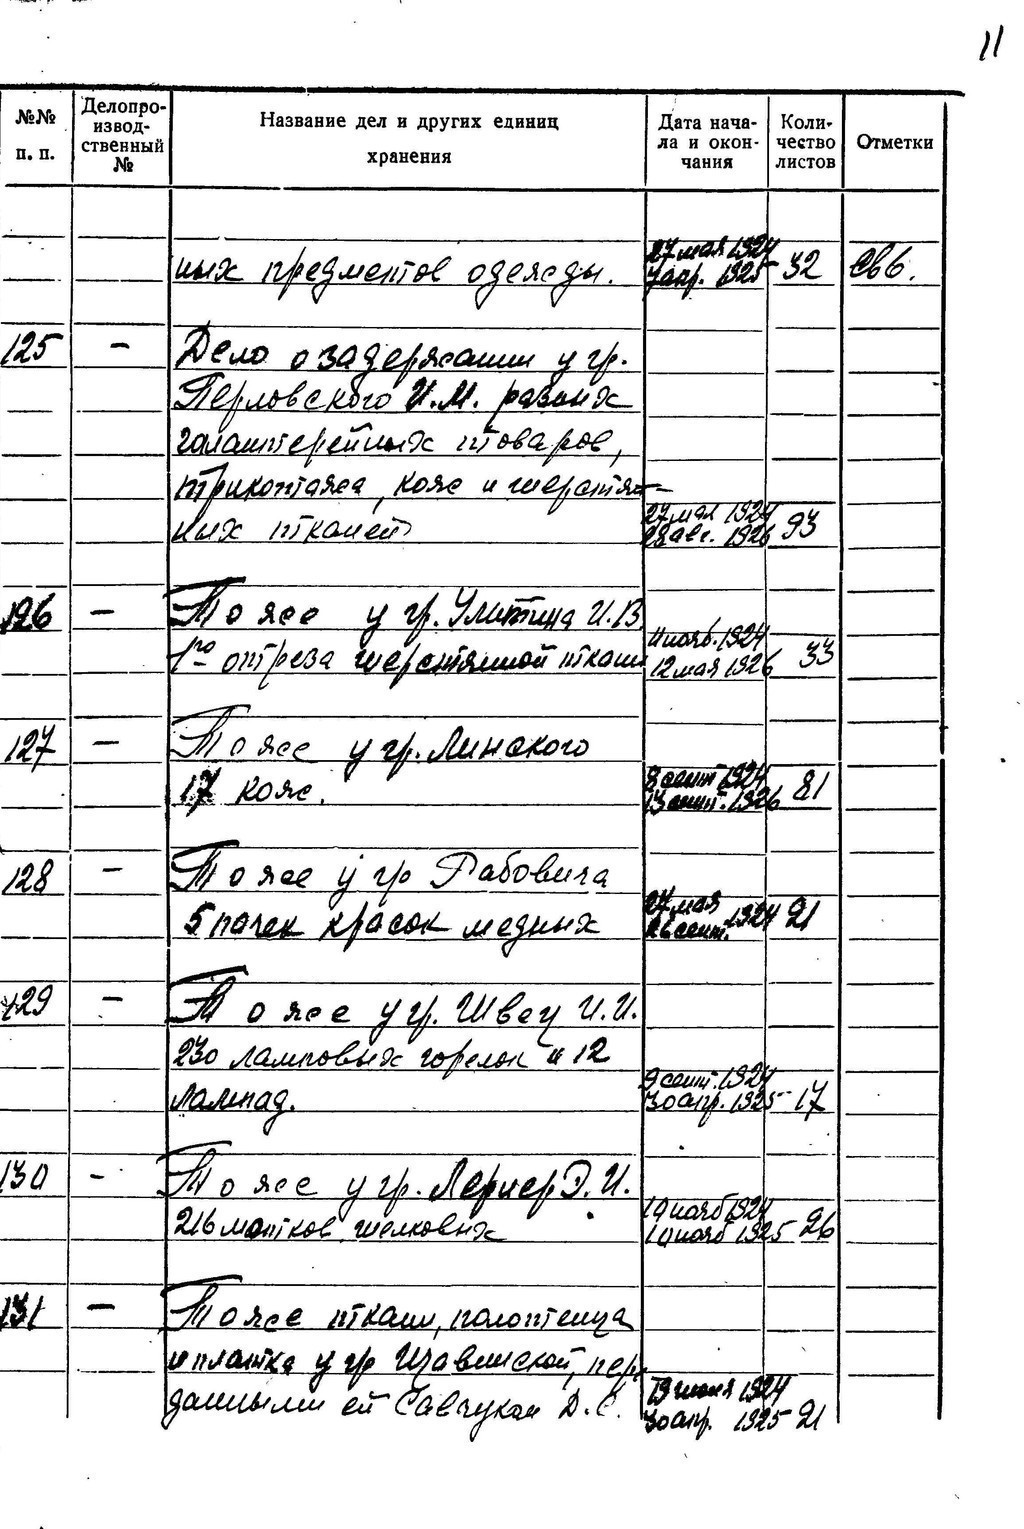 11
№№ п. п.
Делопро-
извод-
ственный
№
Название дел и других единиц
хранения
Дата нача-
ла и окон-
чания
Коли-
чество
листов
Отметки
ных предметов одежды. 27 мая 1924 7 апр. 1925 32
125 – Дело о задержании у гр.
Перловского И.М. разных
галантерейных товаров,
трикотажа, кож и шерстя-
ных тканей 27 мая 1924 28 авг. 1926 93
126 – То же у гр. Улитина И.В.
1го отреза шерстянной ткани 11 нояб. 1924 12 мая 1926 33
127 – То же у гр. Линского
17 кож. 8 сент 1924 13 сент. 1926 81
128 – То же у гр Рабовича
5 пачек красок медных 27 мая 26 сент. 1924 21
129 – То же у гр. Швец И.И.
230 ламповых горелок и 12
лампад. 9 сент. 1924 30 апр. 1925 17
130 – То же у гр. Лернер Э.И.
216 мотков шелковых 19 нояб 1924 10 нояб 1925 26
131 – То же ткани, полотенца
и платка у гр Ицавинской, пере
данными ей Савчукам Д.С. 19 июня 1924 30 апр. 1925 21